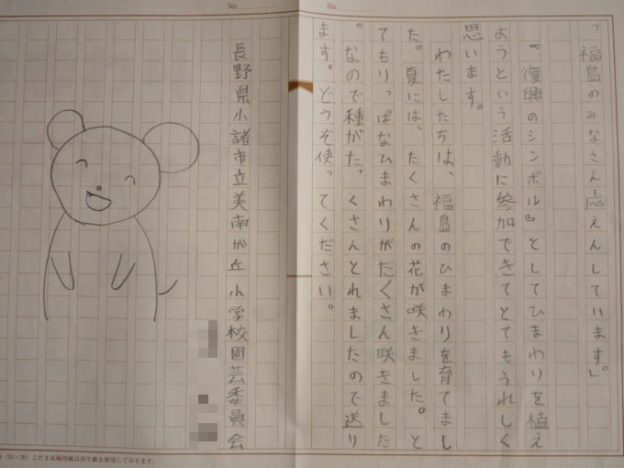 No.
No.
「福島のみなさん応えんしています。」
『復興のシンボル』としてひまわりを植え
ようという活動に参加できてとてもうれしく
思います。
わたしたちは、福島のひまわりを育てまし
た。夏には、たくさんの花が咲きました。と
てもりっぱなひまわりがたくさん咲きました
。なので種がた。くさんとれましたので送り
ます。どうぞ使ってください。
長野県小諸市立美南が丘小学校園芸委員会
(20×20) こだま原稿用紙は再生紙を使用しております。